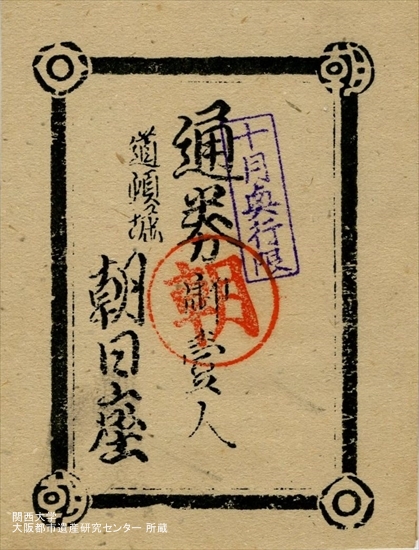 十月興行限
通券御壹人
朝
道頓堀
朝日座
朝
朝
関西大学
大阪都市遺産研究センター 所蔵